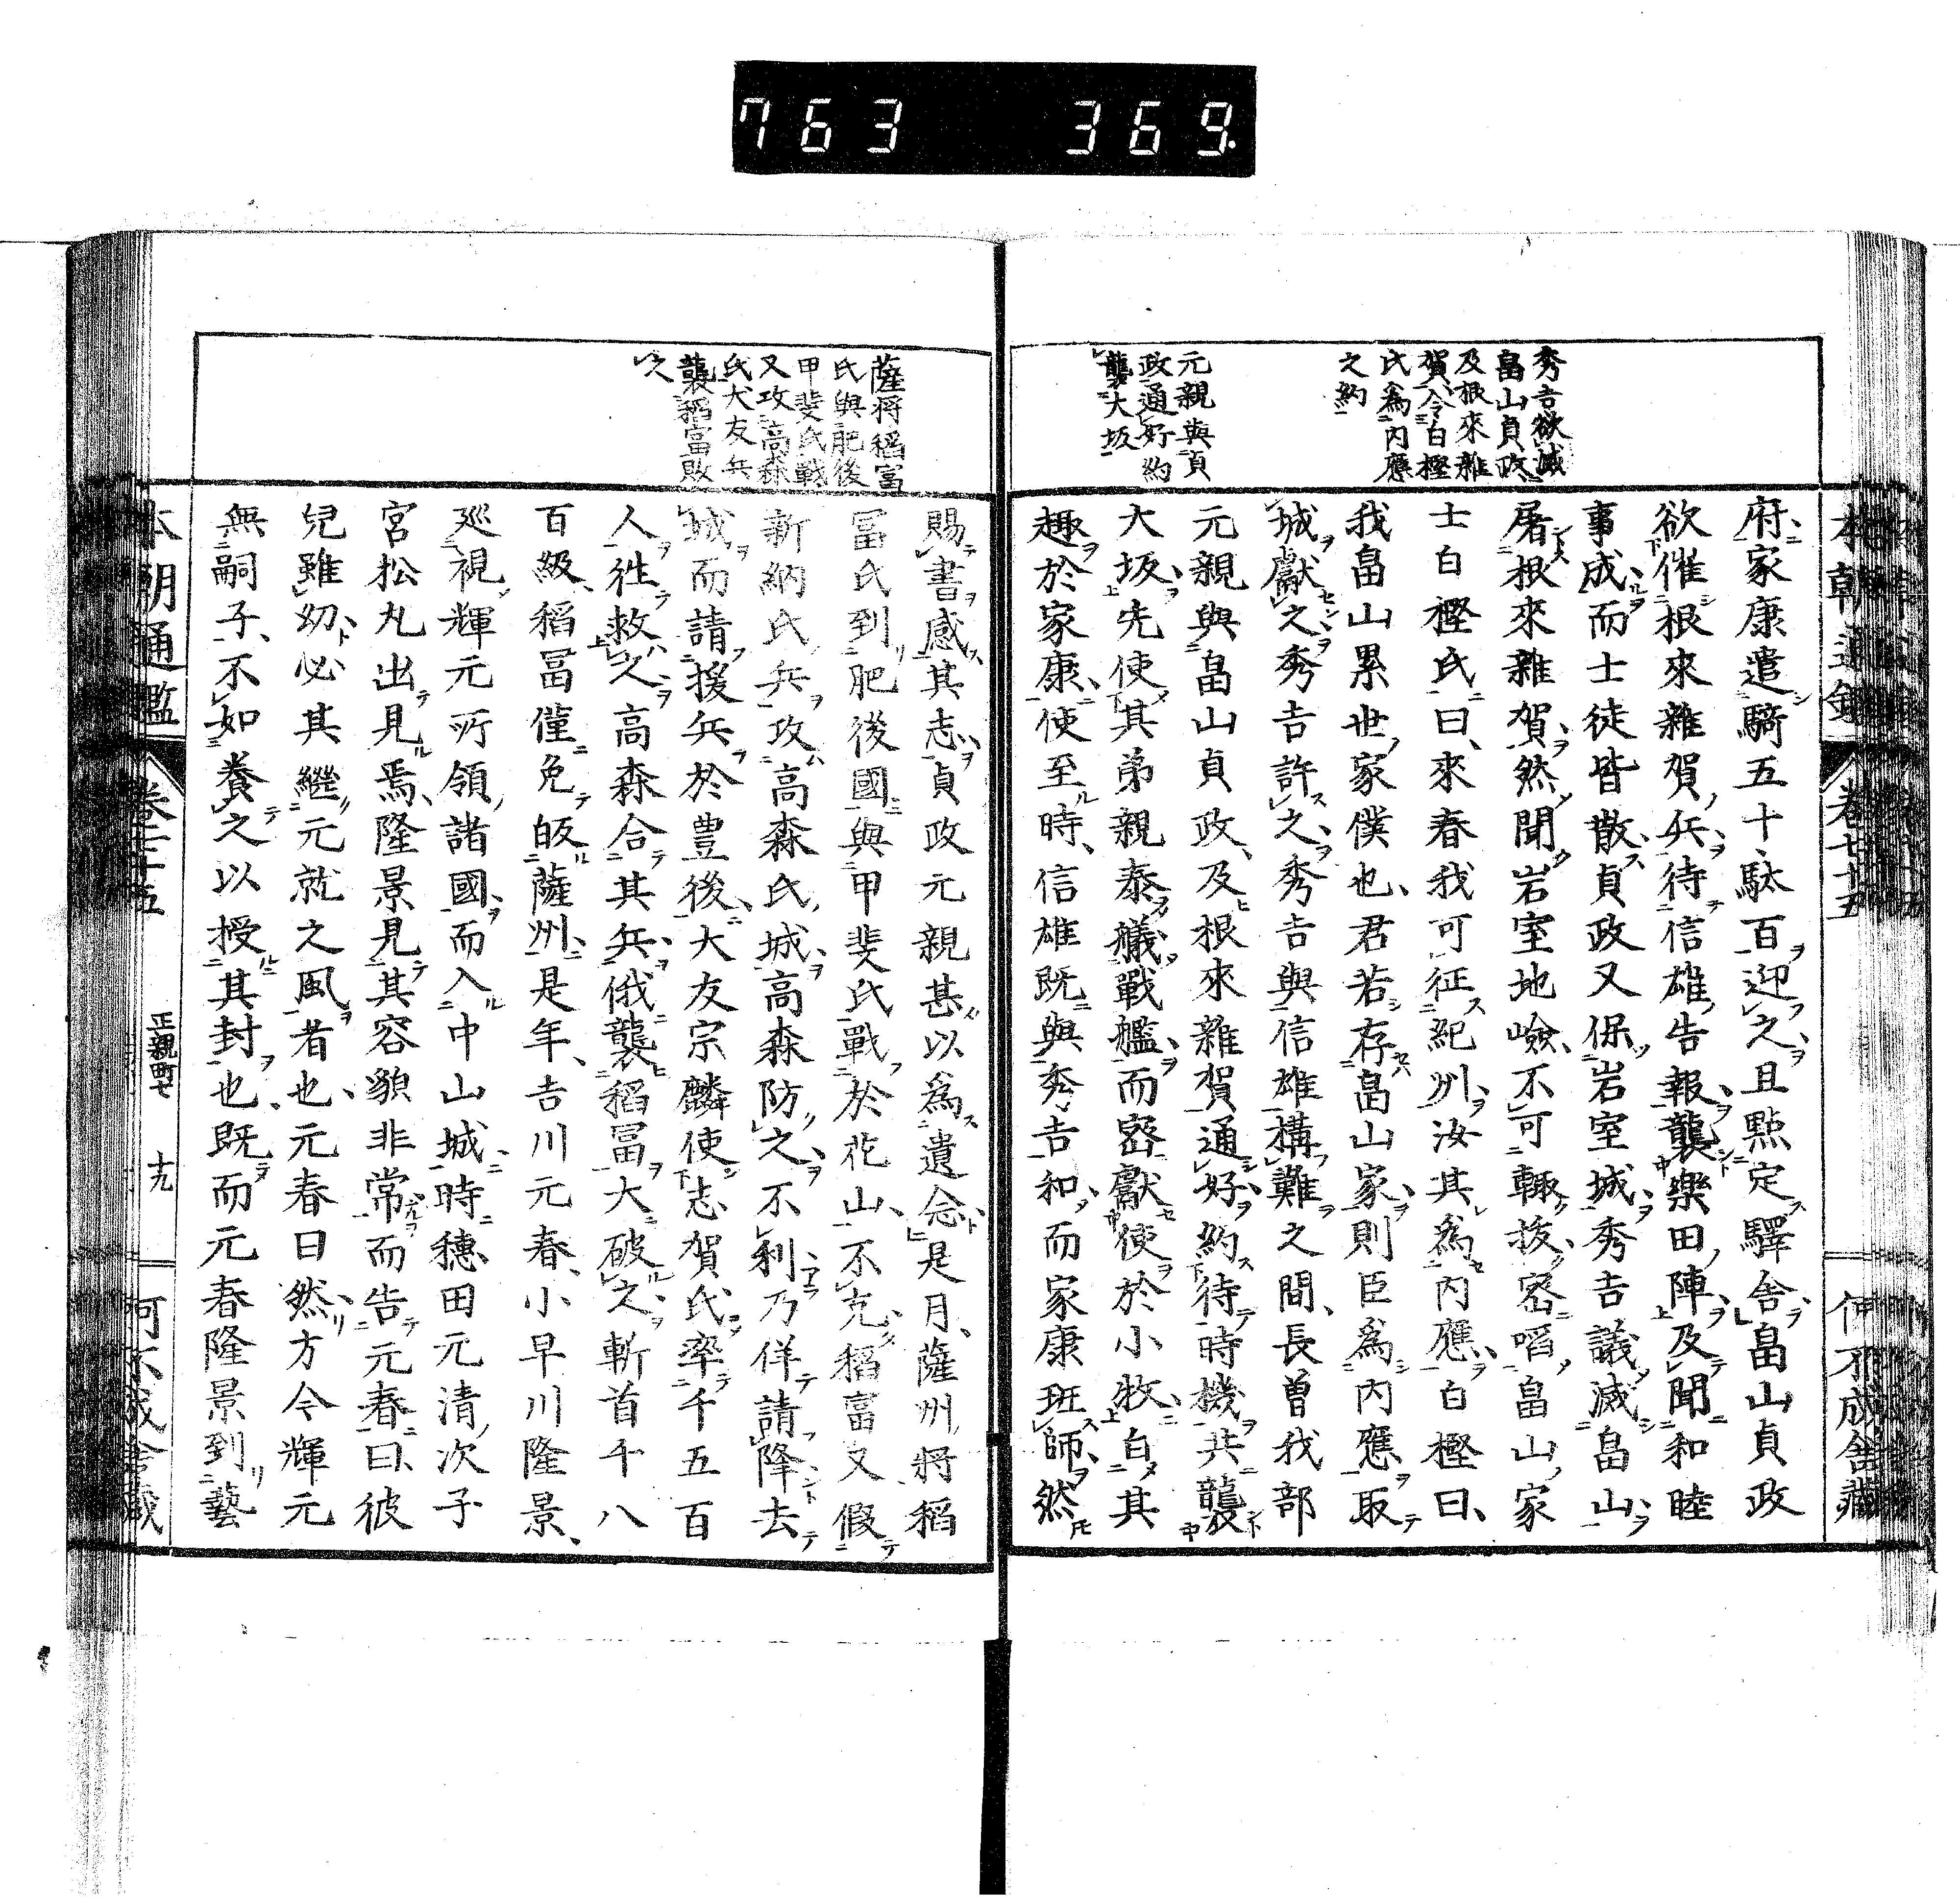 763 369
秀吉欲滅
畠山貞政
及根來雜
賀令白樫
氏爲内應
之約
元親與貞
政通好約
襲大坂
府家康遣騎五十駄百迎之且㸃定驛舎畠山貞政
欲催根來雜賀兵待信雄告報襲樂田陣及聞和睦
事成而士徒皆散貞政又保岩室城秀吉議滅畠山
屠根來雜賀然聞岩室地嶮不可輙抜密啗畠山家
士白樫氏曰來春我可征紀州汝其爲内應白樫曰
我畠山累世家僕也君若存畠山家則臣爲内應取
城獻之秀吉許之秀吉與信雄構難之間長曽我部
元親與畠山貞政及根來雜賀通好約待時機共襲
大坂先使其弟親泰艤戰艦而密獻使於小牧白其
趣於家康使至時信雄既與秀吉和而家康班師然
本朝通鑑 卷七十五
何不成舎藏
薩将稲富
氏與肥後
甲斐氏戰
又攻高森
氏大友兵
襲稲富敗
之
賜書感其志貞政元親甚以爲遺念是月薩州将稲
冨氏到肥後國與甲斐氏戰於花山不克稲富又假
新納氏兵攻高森氏城高森防之不利乃佯請降去
城而請援兵於豊後大友宗麟使志賀氏率千五百
人徃救之高森合其兵俄襲稲冨大破之斬首千八
百級稲冨僅免皈薩州是年吉川元春小早川隆景
巡視輝元所領諸國而入中山城時穂田元清次子
宮松丸出見焉隆景見其容貌非常而告元春曰彼
兒雖幼必其繼元就之風者也元春曰然方今輝元
無嗣子不如養之以授其封也既而元春隆景到藝
本朝通鑑 卷七十五 正親町七 十九